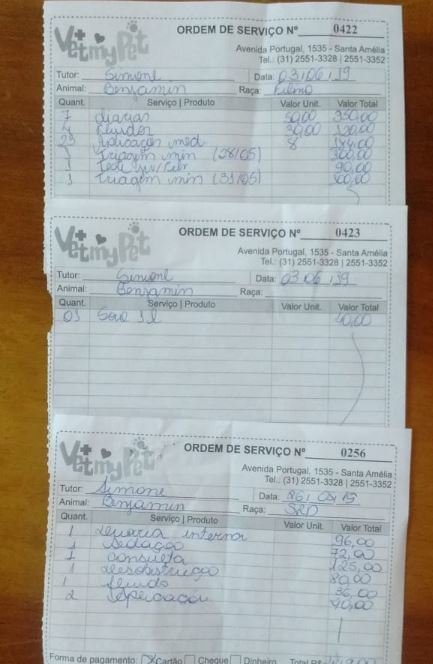 Vet my Pet
ORDEM DE SERVIÇO Nº 0422
Avenida Portugal, 1535 - Santa Amélia
Tel.: (31) 2551-3328 | 2551-3352
Tutor: Simone Data: 03/06/19
Animal: Benjamin Raça: Felino
Quant. Serviço | Produto Valor Unit. Valor Total
7 diarias 50,00 350,00
4 fluidos 30,00 120,00
23 Aplicação med 8 184,00
1 Triagem min (28/05)
1 90,00
1 Triagem min (31/05)
Vet my Pet
ORDEM DE SERVIÇO Nº 0423
Avenida Portugal, 1535 - Santa Amélia
Tel.: (31) 2551-3328 | 2551-3352
Tutor: Simone Data: 03/06/19
Animal: Benjamin Raça:
Quant. Serviço | Produto Valor Unit. Valor Total
01
Vet my Pet
ORDEM DE SERVIÇO Nº 0256
Avenida Portugal, 1535 - Santa Amélia
Tel.: (31) 2551-3328 | 2551-3352
Tutor: Simone Data:
Animal: Benjamin Raça: SRD
Quant. Serviço | Produto Valor Unit. Valor Total
1 interna 96,00
1 sedação 72,00
1 consulta 125,00
1 desobstrução 80,00
1 fluido 36,00
2 40,00
Forma de pagamento: Cartão Cheque Dinheiro Total R$